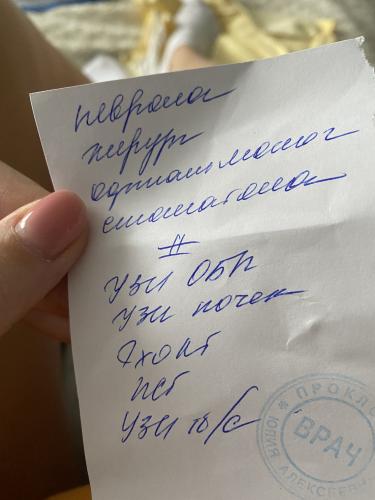 невролог
хирург
офтальмолог
стоматолог
#
УЗИ ОБП
УЗИ почек
ЭХОКГ
НСГ
УЗИ т/с
ПРОКЛО
ВРАЧ
АЛЕКСЕЕВ